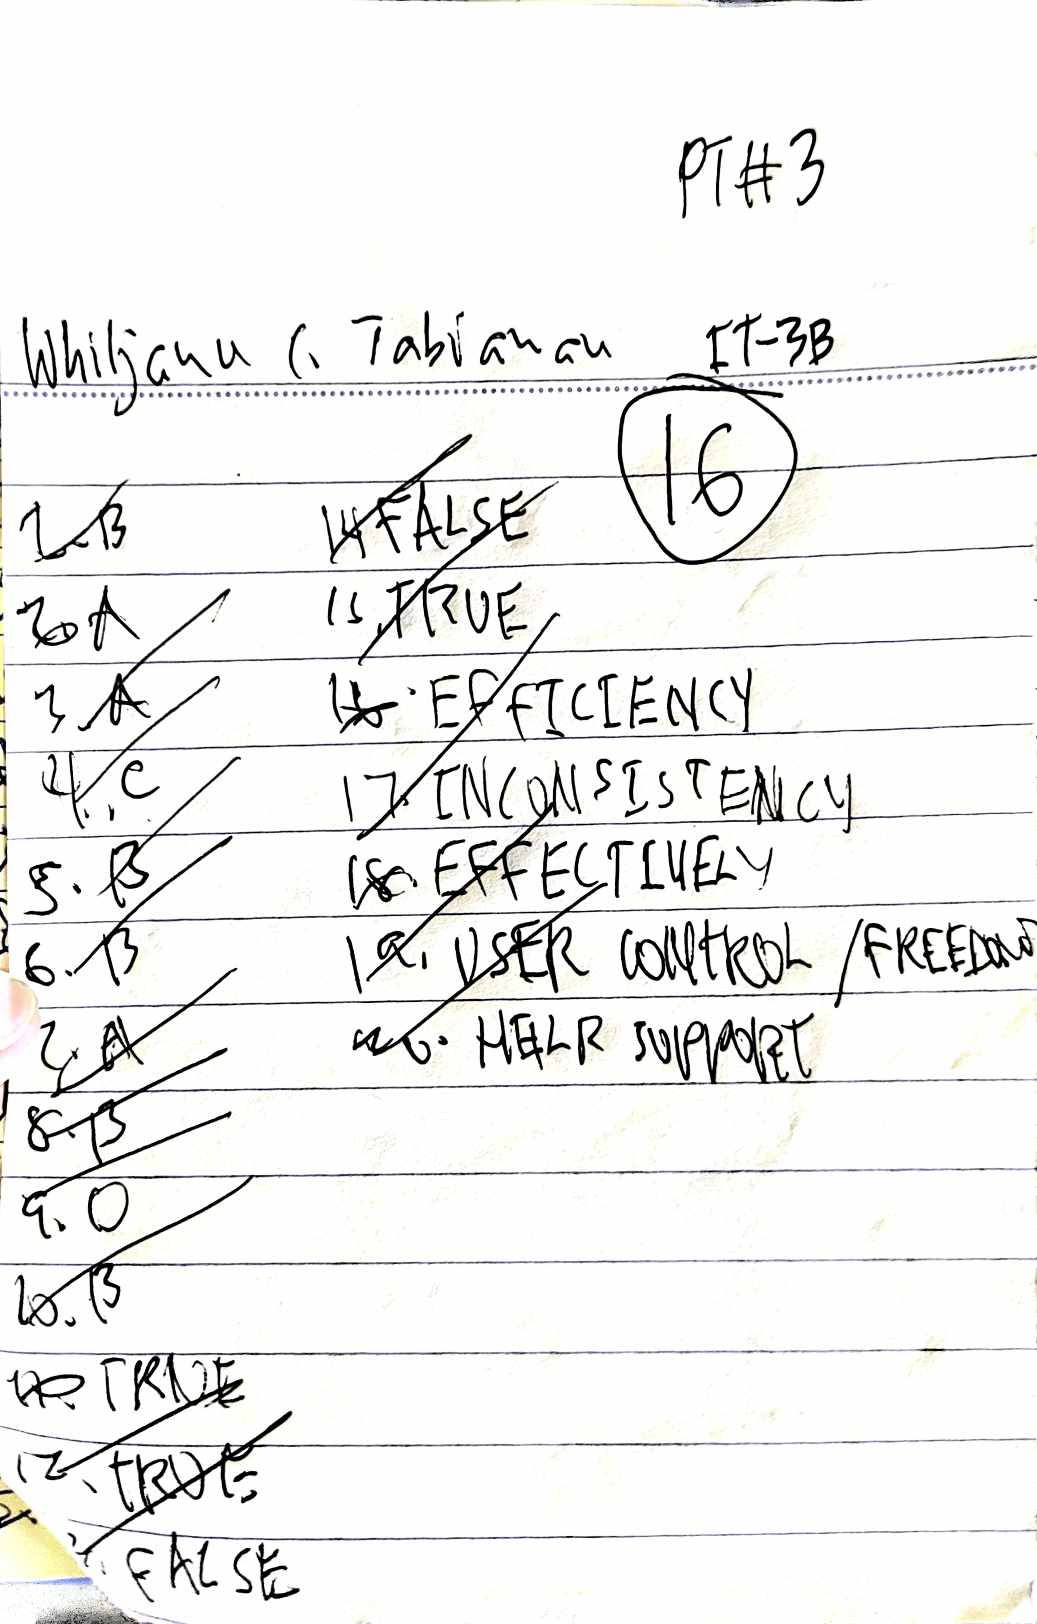 PT#3
Whiljanu C. Tabianan IT-3B
16
1. B
2. A
3. A
4. C
5. B
6. B
7. A
8. B
9. O
10. B
11. TRUE
12. TRUE
FALSE
14. FALSE
15. TRUE
16. EFFICIENCY
17. INCONSISTENCY
18. EFFECTIVELY
19. USER CONTROL /FREEDOM
20. HELP SUPPORT